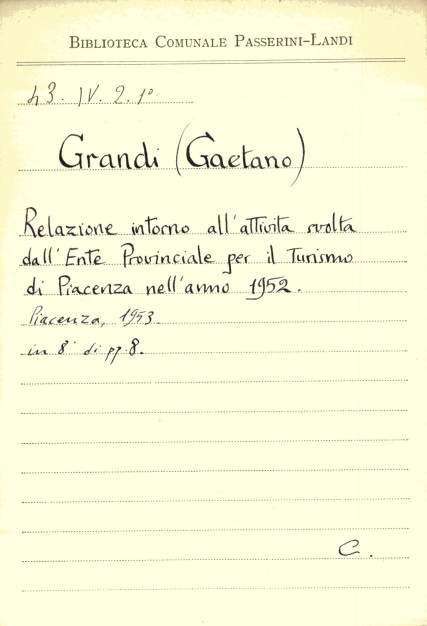 BIBLIOTECA COMUNALE PASSERINI-LANDI
43. IV. 2. 1º
Grandi (Gaetano)
Relazione intorno all'attivita svolta
dall'Ente Provinciale per il Turismo
di Piacenza nell'anno 1952.
Piacenza, 1953.
in 8° di pp 8.
C.